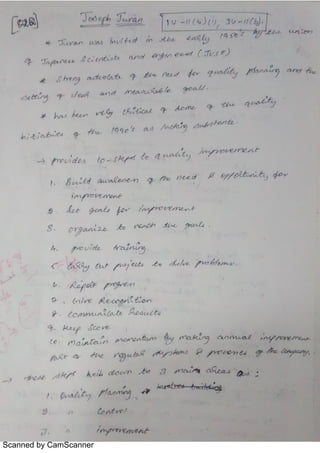 Joseph Juran
* Juran was invited in the early 1950's by the union
of Japanese Scientists and engineers (JUSE)
* Strong advocate of the need for quality planning and the
setting of clear and measurable goals.
* has been very critical of some of the quality
initiatives of the 1990's as lacking substance.
→ provides 10-steps to quality improvement
1. Build awareness of the need & opportunity for
improvement
2. Set goals for improvement
3. organize to reach the goals.
4. provide training.
5. Carry out projects to solve problems.
6. Report progress
7. Give Recognition
8. Communicate Results
9. Keep Score
10. Maintain momentum by making annual improvement
part of the regular systems & processes of the company.
→ these steps boil down to 3 main areas :
1. Quality Planning
2. " Control
3. " improvement
Scanned by CamScanner